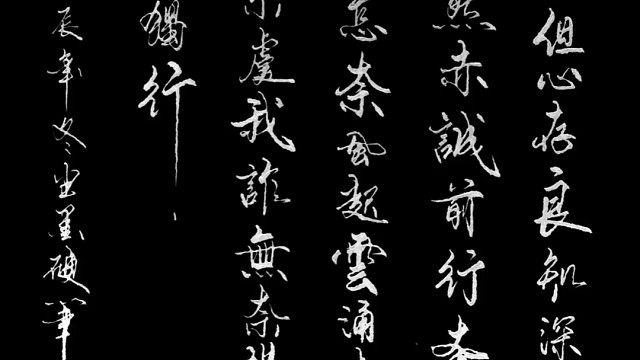 但心存良知深
然赤誠前行本
忘奈風起雲涌
爾虞我詐無奈
獨行
辰年冬出墨硬筆